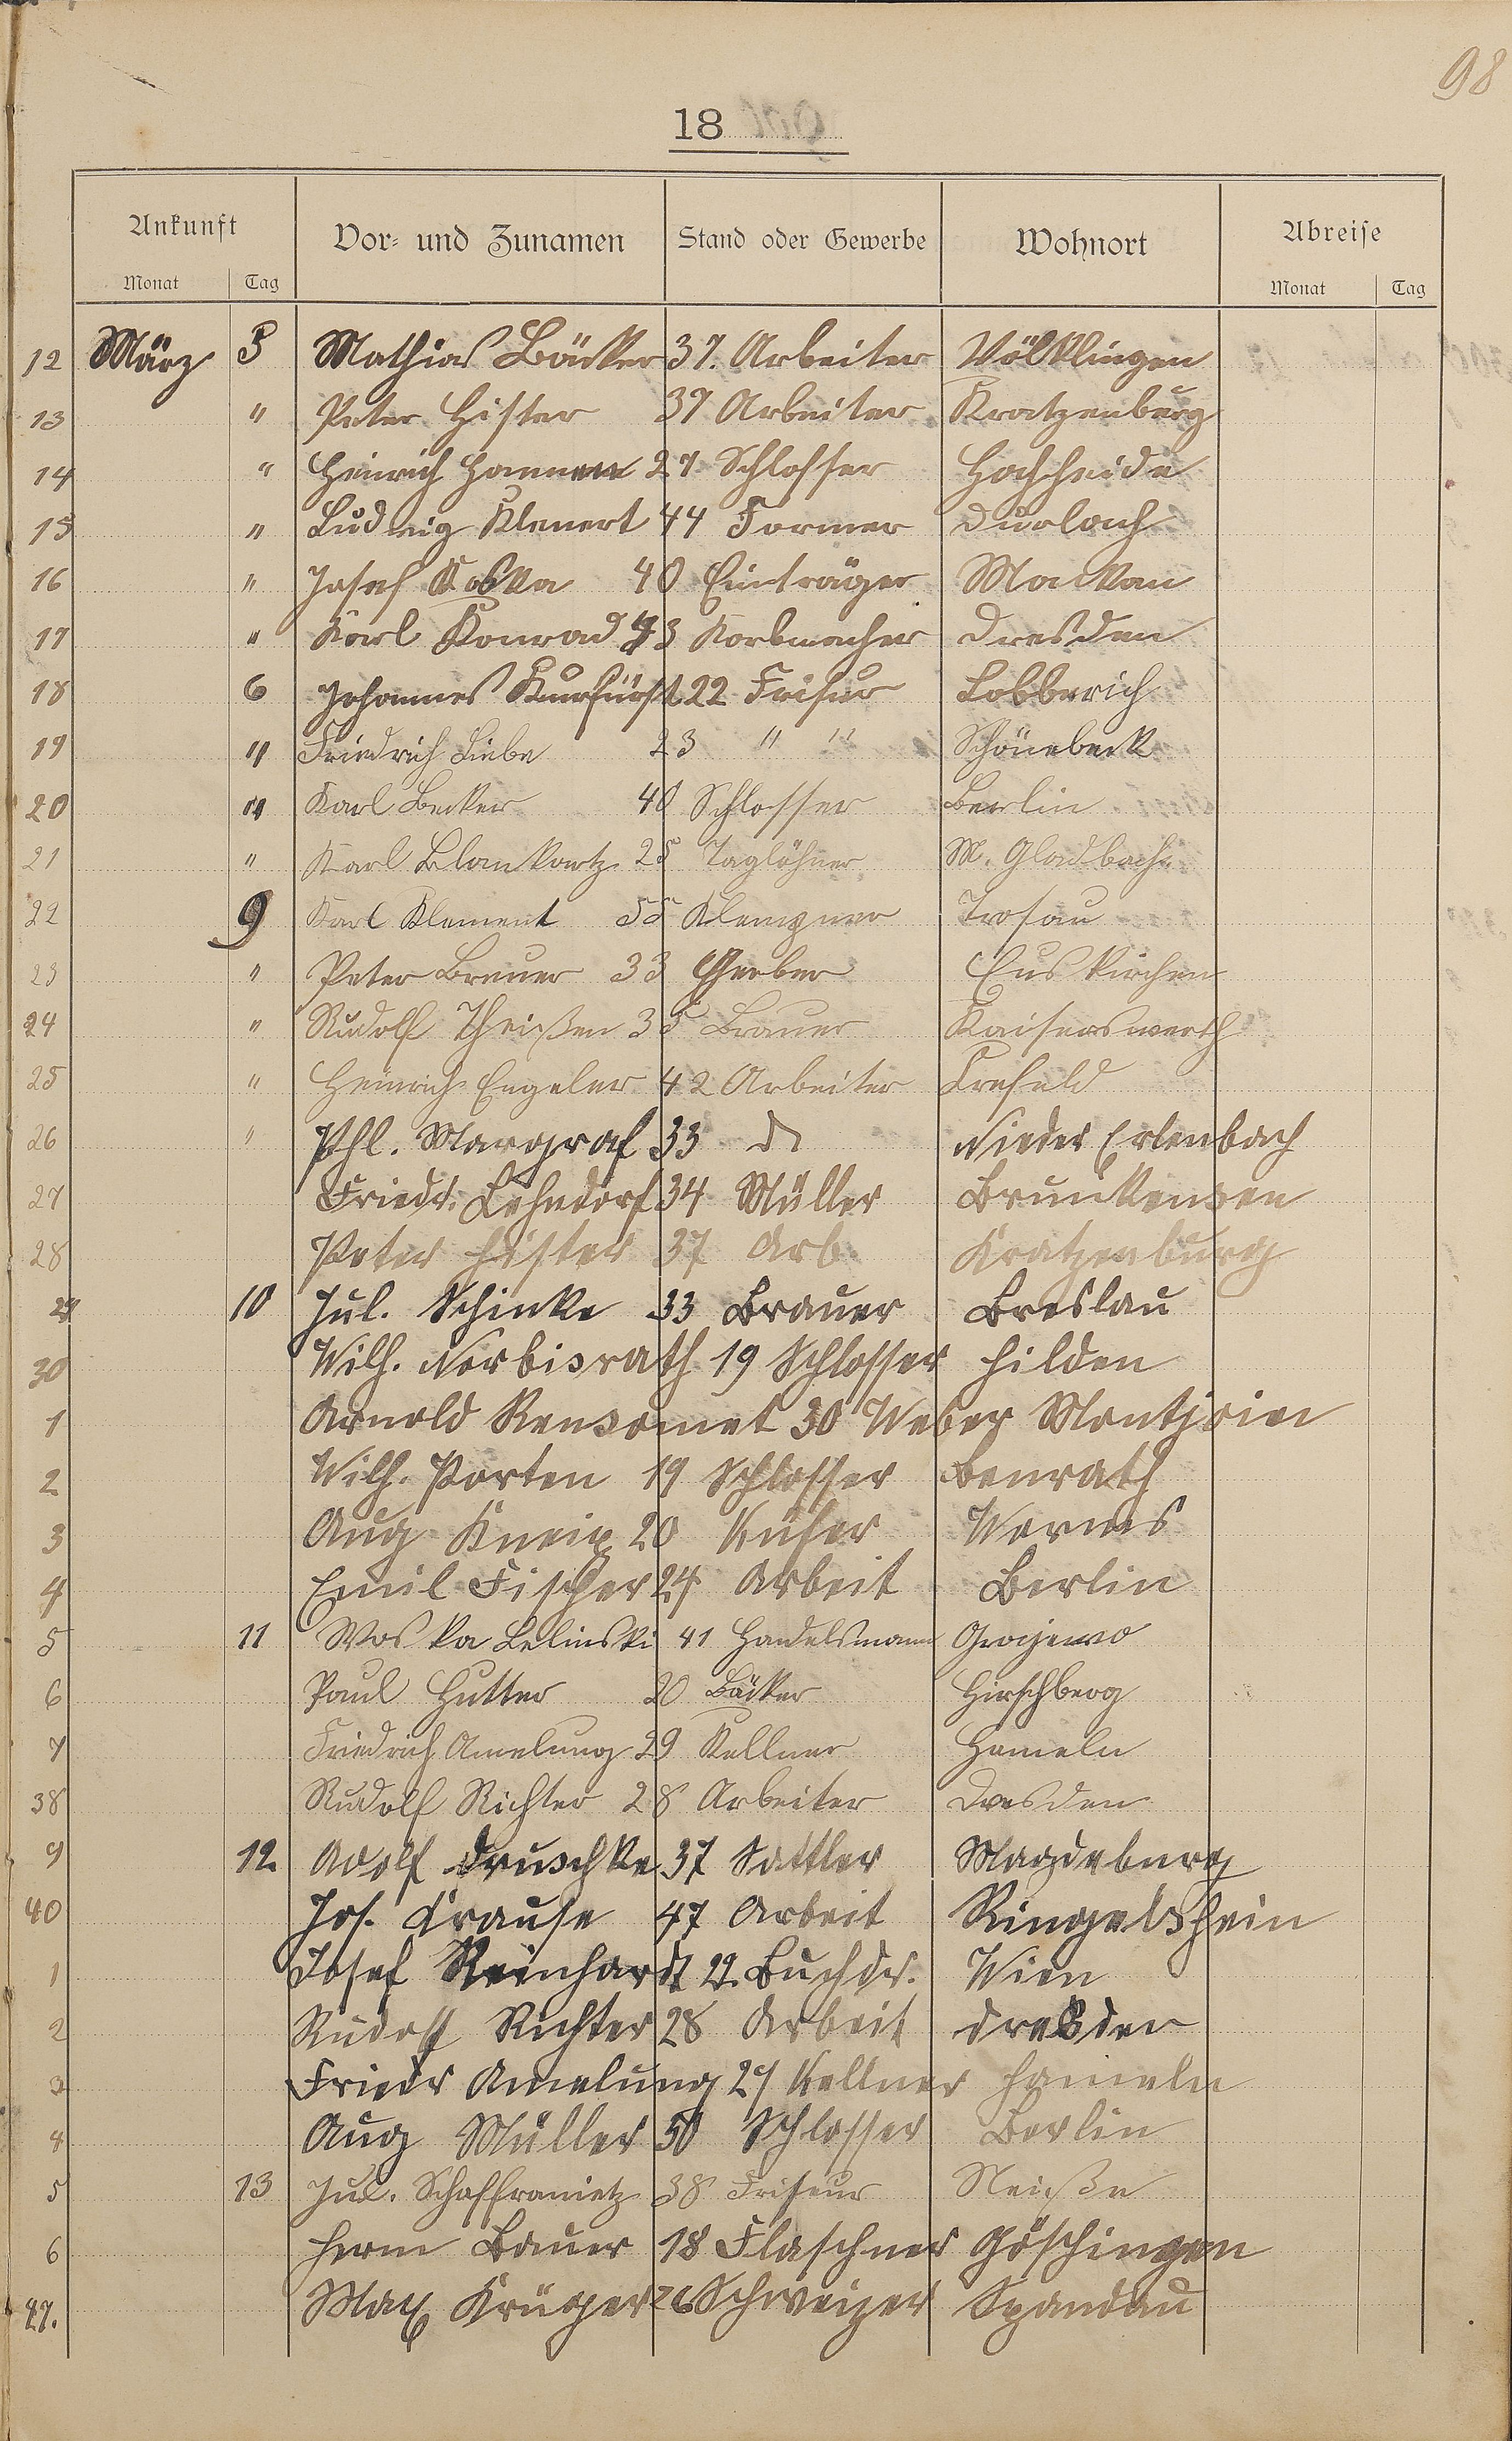 98
18
Ankunft Vor- und Zunamen Stand oder Gewerbe Wohnort Abreise
Monat Tag Monat Tag
12 März 5 Mathias Bäcker 37. Arbeiter Völklingen
13 " Peter Hister 37 Arbeiter Kratzenburg
14 " Heinrich Hannen 27 Schlosser Hochheide
15 " Ludwig Klenert 44 Former Durlach
16 " Josef Koska 40 Einträger Malkau
17 " Karl Konrad 43 Korbmacher Dresden
18 6 Johannes Kurfürst 22 Frisur Lobberich
19 " Friedrich Liebe 23 " " Schönebeck
20 " Karl Becker 40 Schlosser Berlin
21 " Karl Blankartz 25 Taglöhner M. Gladbach
22 9 Karl Klement 55 Klempner Trosau
23 " Peter Breuer 33 Gerber Euskirchen
24 " Rudolf Theißen 35 Brauer Kaiserswerth
25 " Heinrich Engeler 42 Arbeiter Crefeld
26 " Phl. Margraf 33 do Nieder Erlenbach
27 Friedr. Lehndorf 34 Müller Brunkensen
28 Peter Hister 37 Arb. Kratzenburg
29 10 Jul. Schinke 33 Brauer Breslau
30 Wilh. Norbisrath 19 Schlosser Hilden
1 Arnold Rensonet 30 Weber Montjoie
2 Wilh. Porten 19 Schlosser Benrath
3 Aug Kneip 20 Küfer Worms
4 Emil Fischer 24 Arbeit Berlin
5 11 Woska Belinski 41 Handelsmann Grajewo
6 Paul Hutter 20 Bäcker Hirschberg
7 Friedrich Amelung 29 Kellner Hameln
38 Rudolf Richter 28 Arbeiter Dresden
9 12. Adolf Druschke 37 Sattler Magdeburg
40 Jos. Krause 47 Arbeit Ringelshein
1 Josef Reinhardt 22. Buchdr. Wien
2 Rudolf Richter 28 Arbeit Dresden
3 Friedr Amelung 29 Kellner Hameln
4 Aug Müller 50 Schlosser Berlin
5 13 Jul. Schaffranietz 38 Friseur Neiße
6 Herm Bauer 18 Flaschner Göschingen
47. Max Krüger 26 Schweizer Spandau